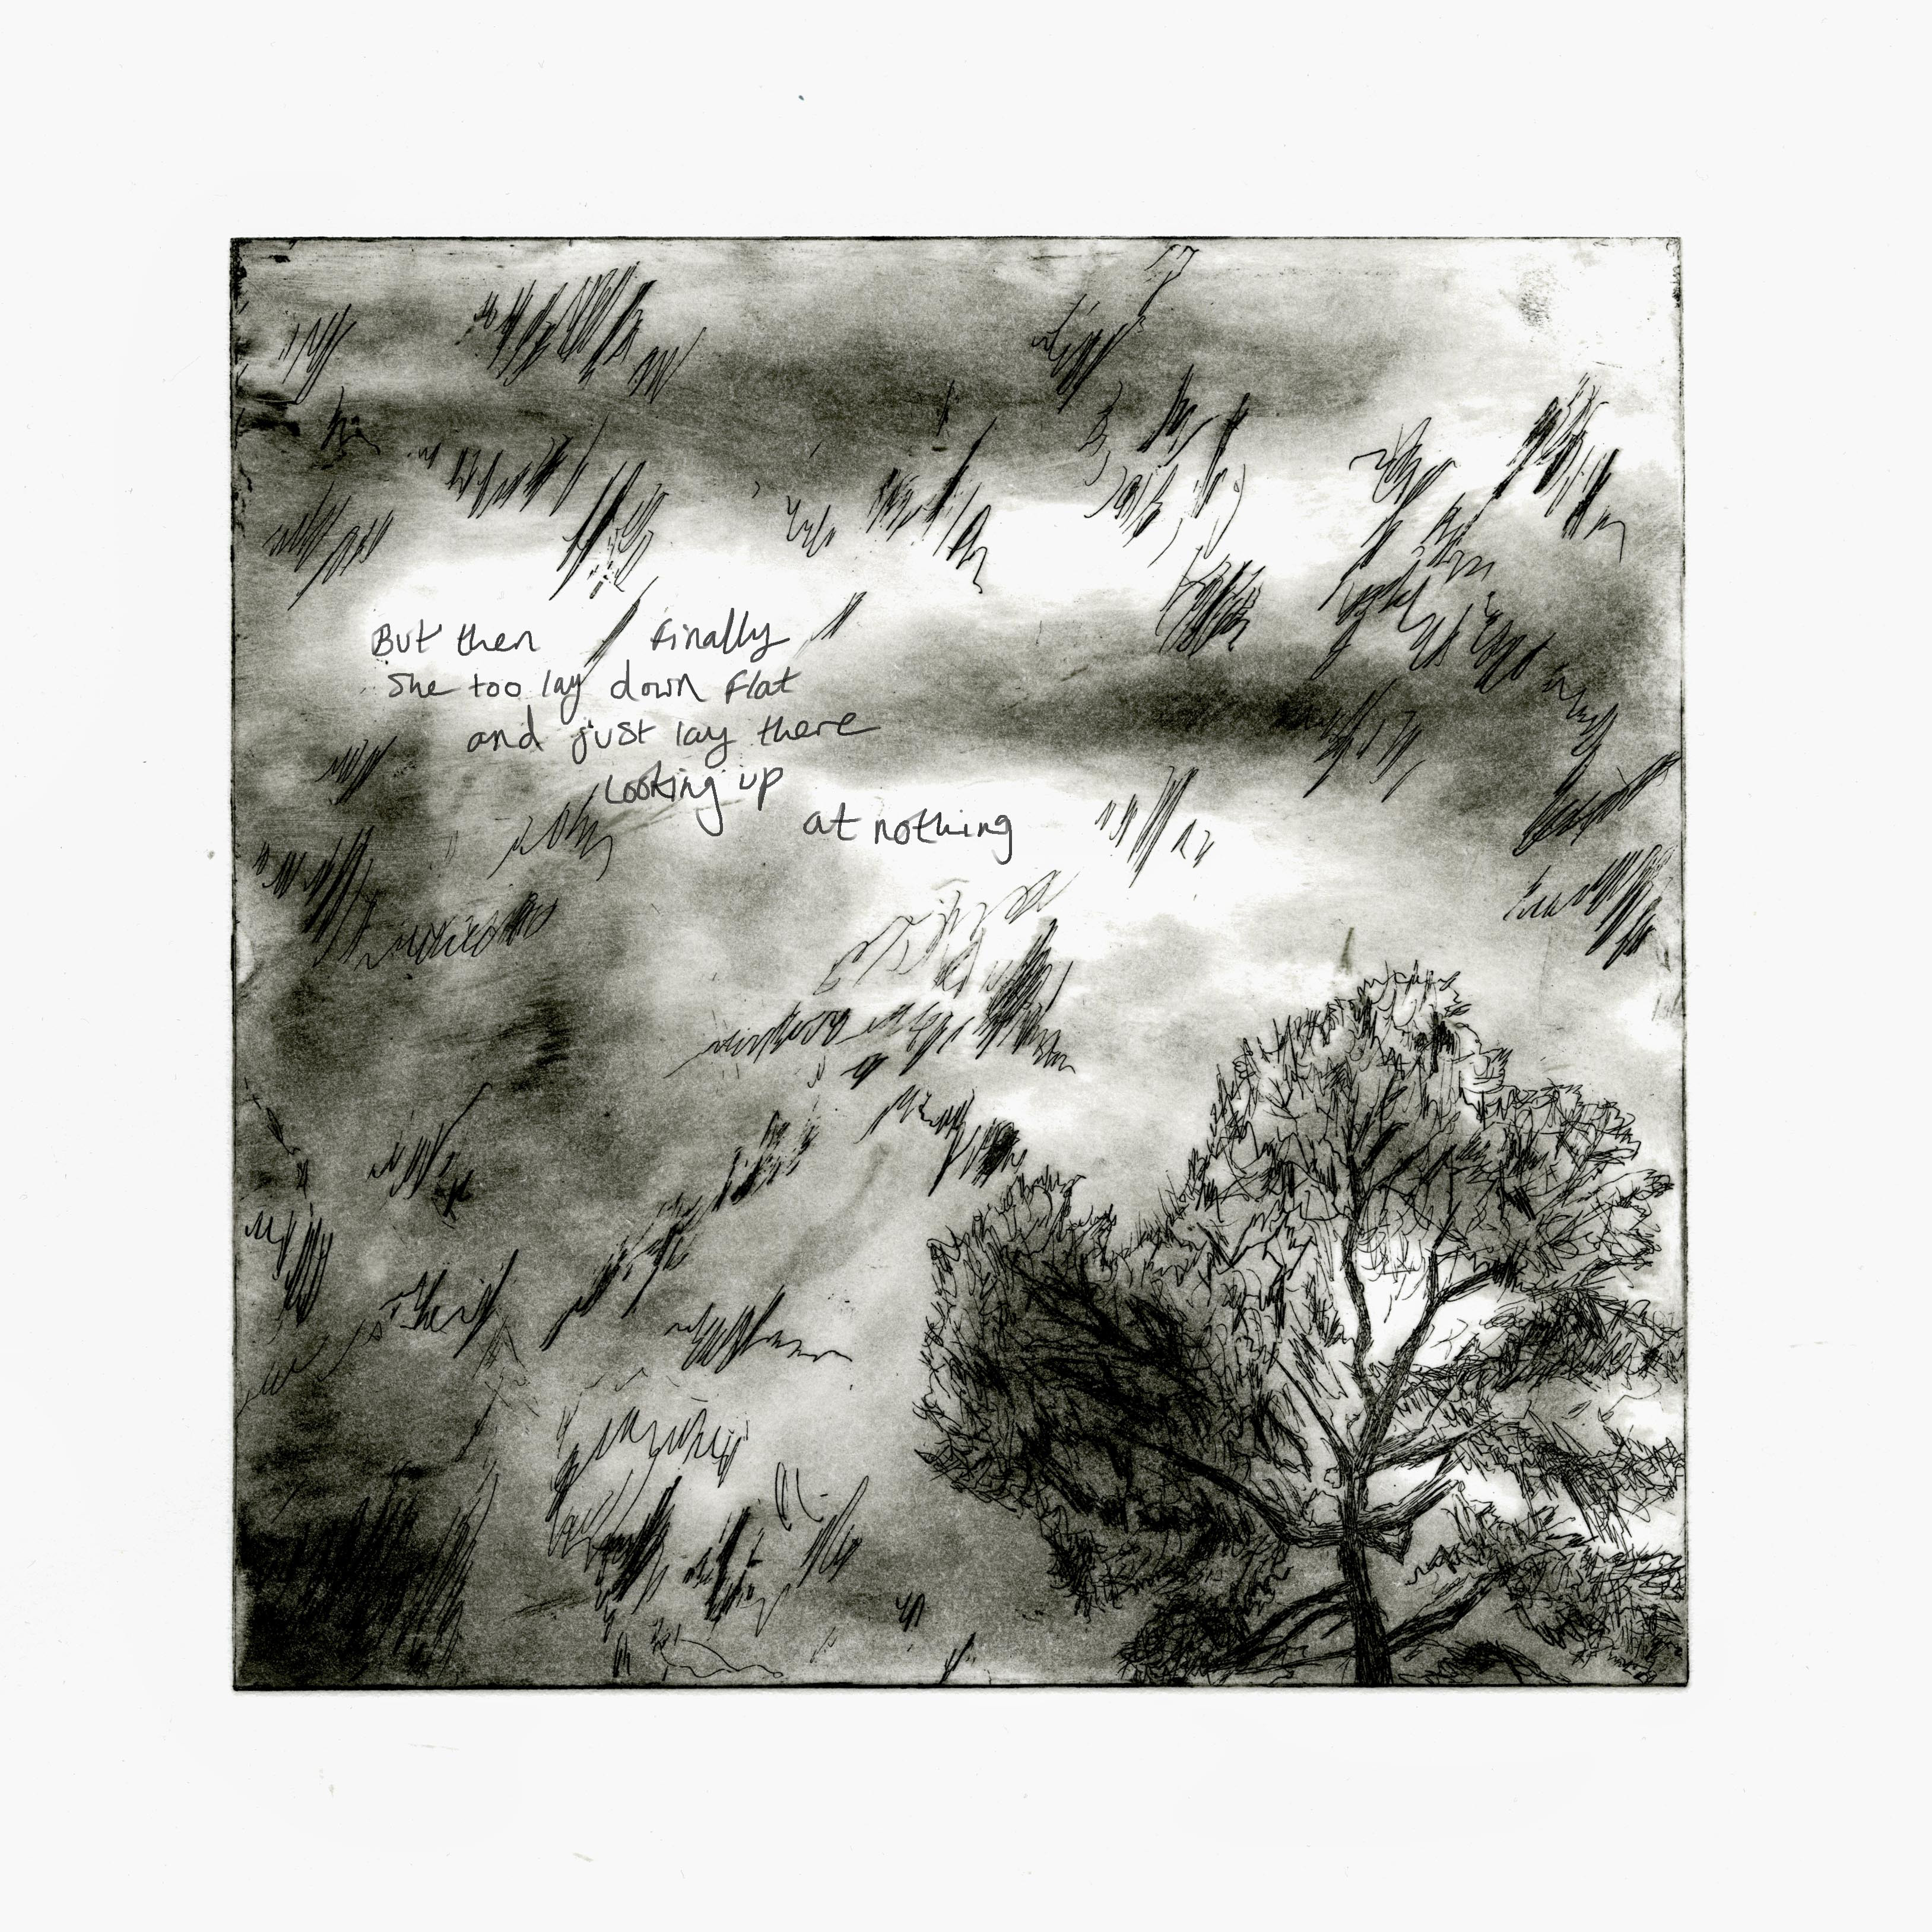 But then finally
She too lay down flat
and just lay there
Looking up
at nothing